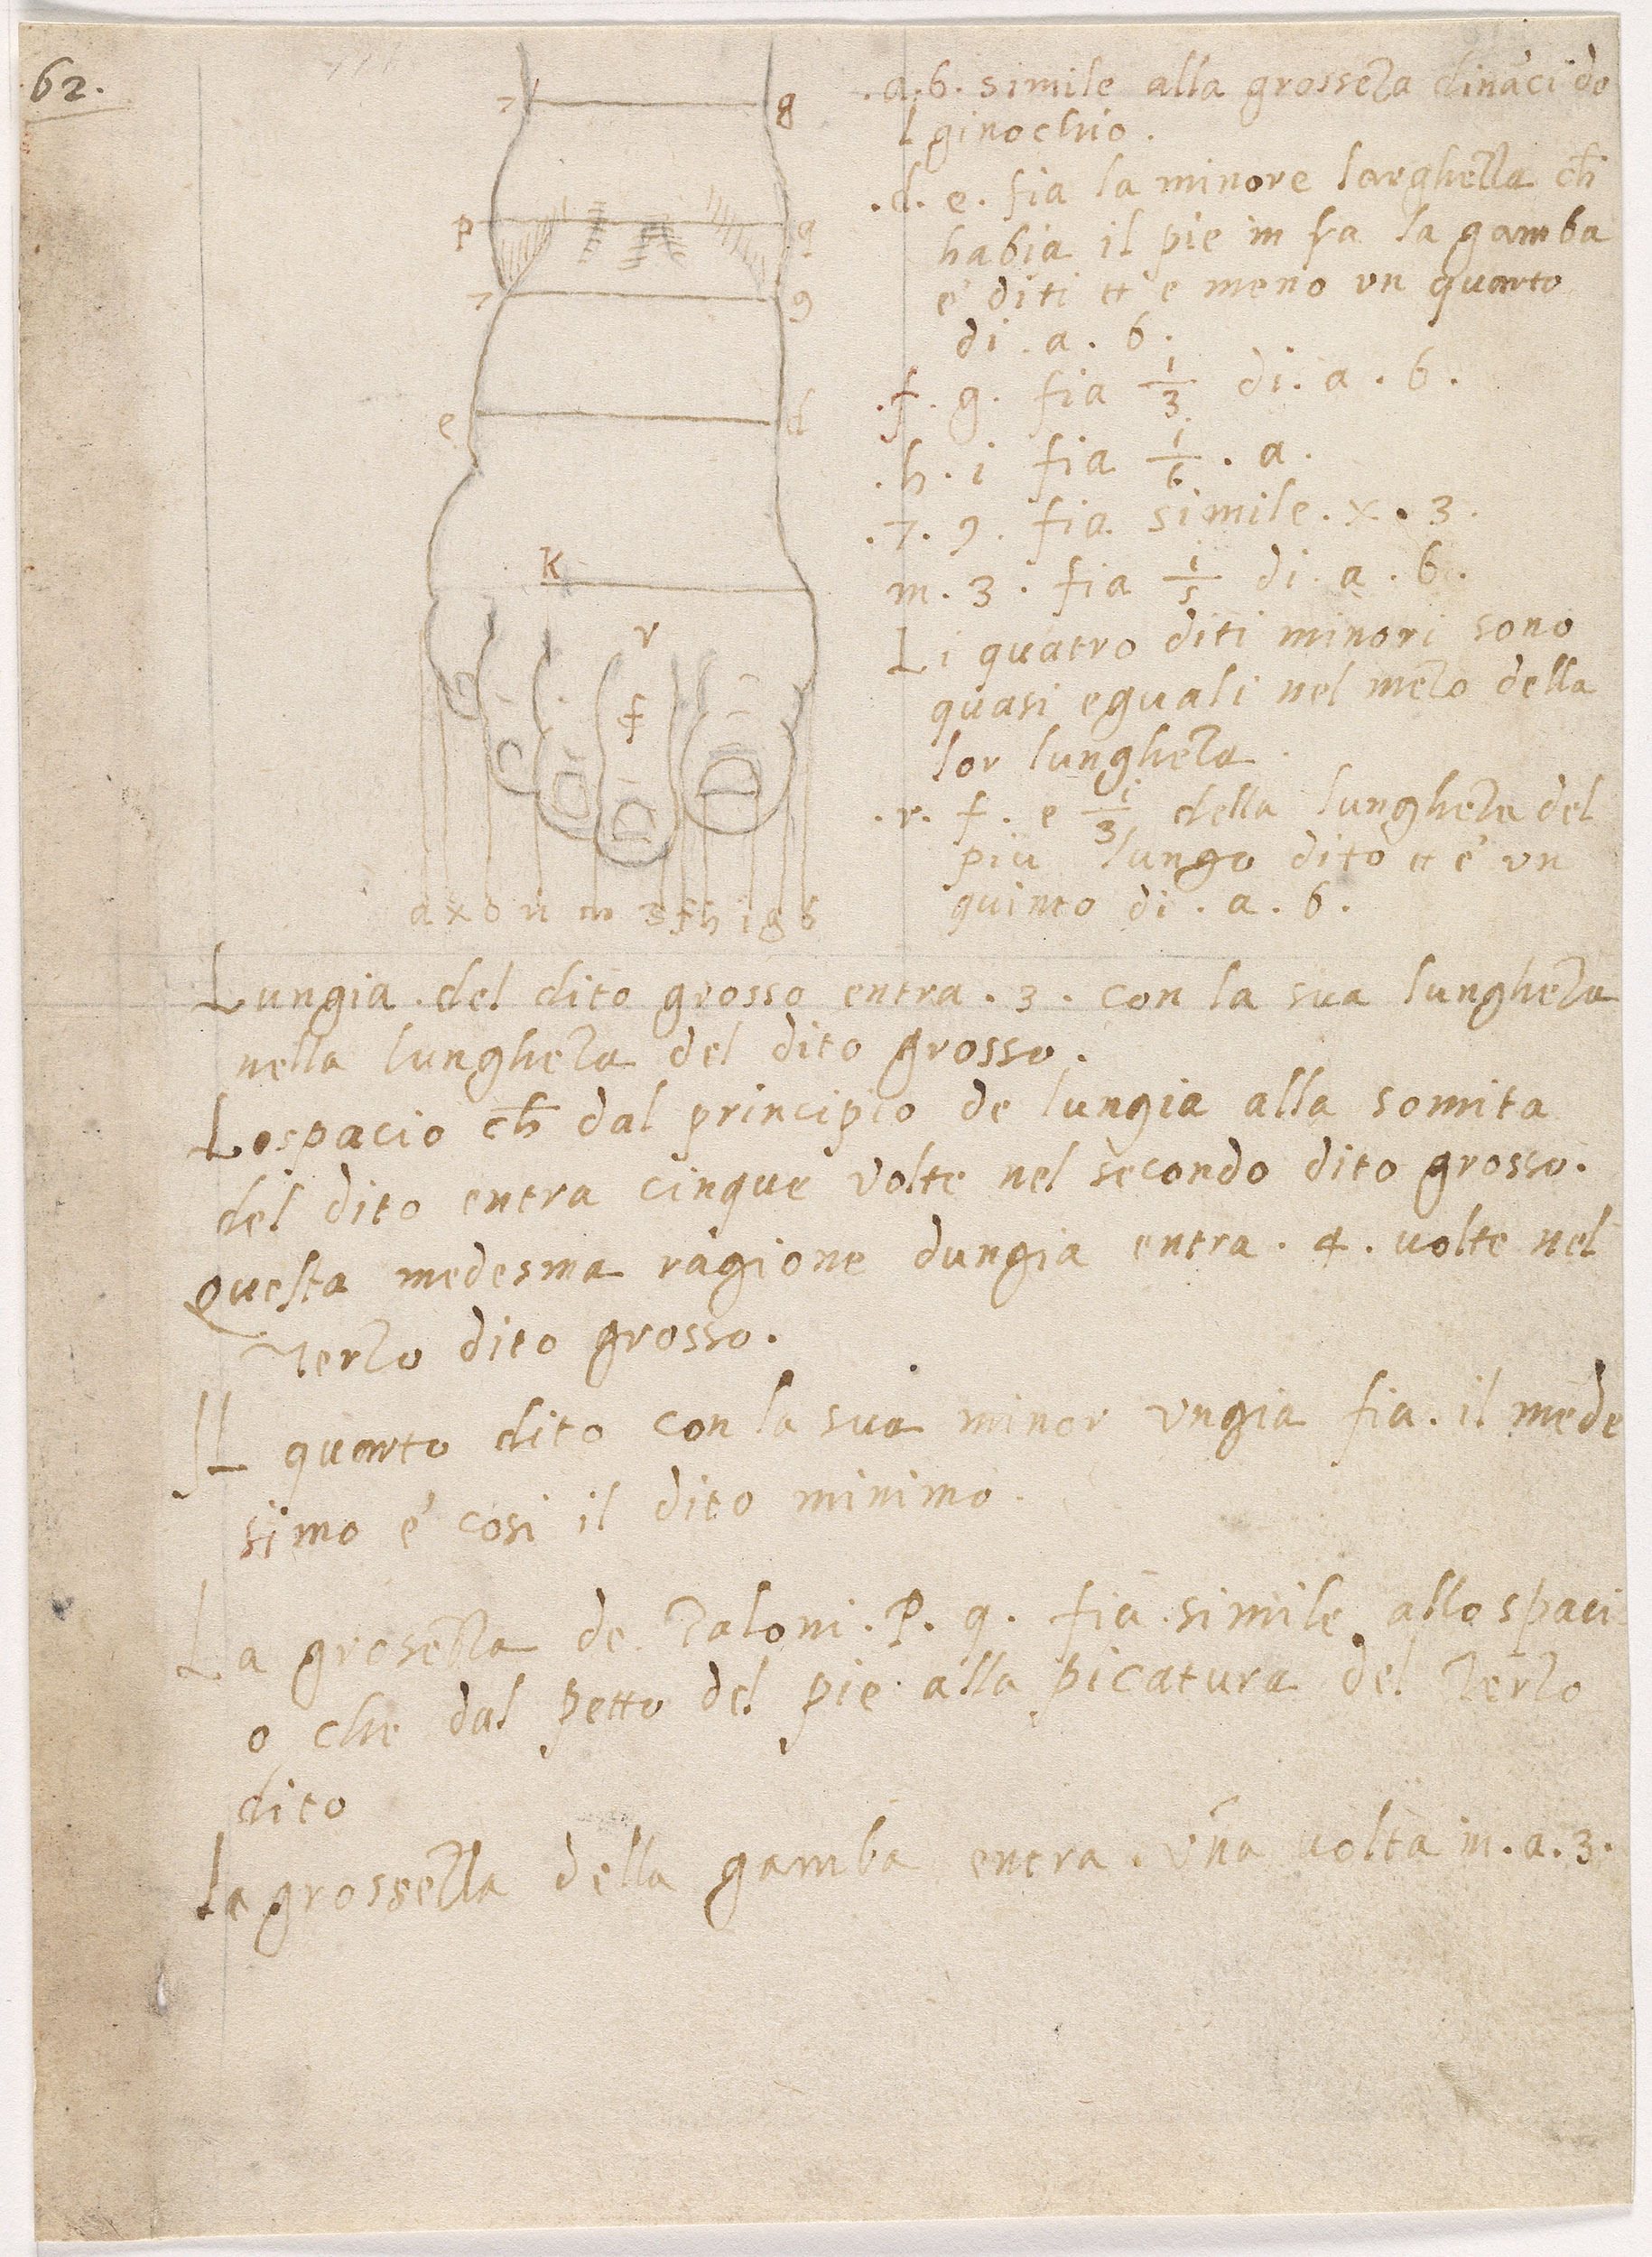 62.
7 8
P q
7 9
e d
K
r
f
a x o n m 3 f h i g b
.a.b. simile alla grosseza dināci do
l ginochio.
.d. e. fia la minore larghezza ch
habia il pie in fra la gamba
e' diti et e meno vn quarto
di . a . b .
.f. g. fia 1/3 di . a . b .
.h . i fia 1/6 . a .
.7. 9. fia simile . x . 3 .
m . 3 . fia 1/5 di . a . b .
Li quatro diti minori sono
quasi eguali nel mezo della
lor lungheza .
.r. f. e 1/3 della lungheza del
piu lungo dito et e' vn
quinto di . a . b .
Lungia . del dito grosso entra . 3 . con la sua lungheza
nella lungheza del dito grosso .
Lospacio ch dal principio de lungia alla somita
del dito entra cinque volte nel secondo dito grosso .
Questa medesma ragione dungia entra . 4 . volte nel
Terzo dito grosso .
Il quarto dito con la sua minor vngia fia . il mede
simo e' cosi il dito minimo .
La grosezza de Taloni . P . q . fia simile allo spaci
o che dal petto del pie alla picatura del Terzo
dito
la grossezza della gamba entra . vna volta in . a . 3 .